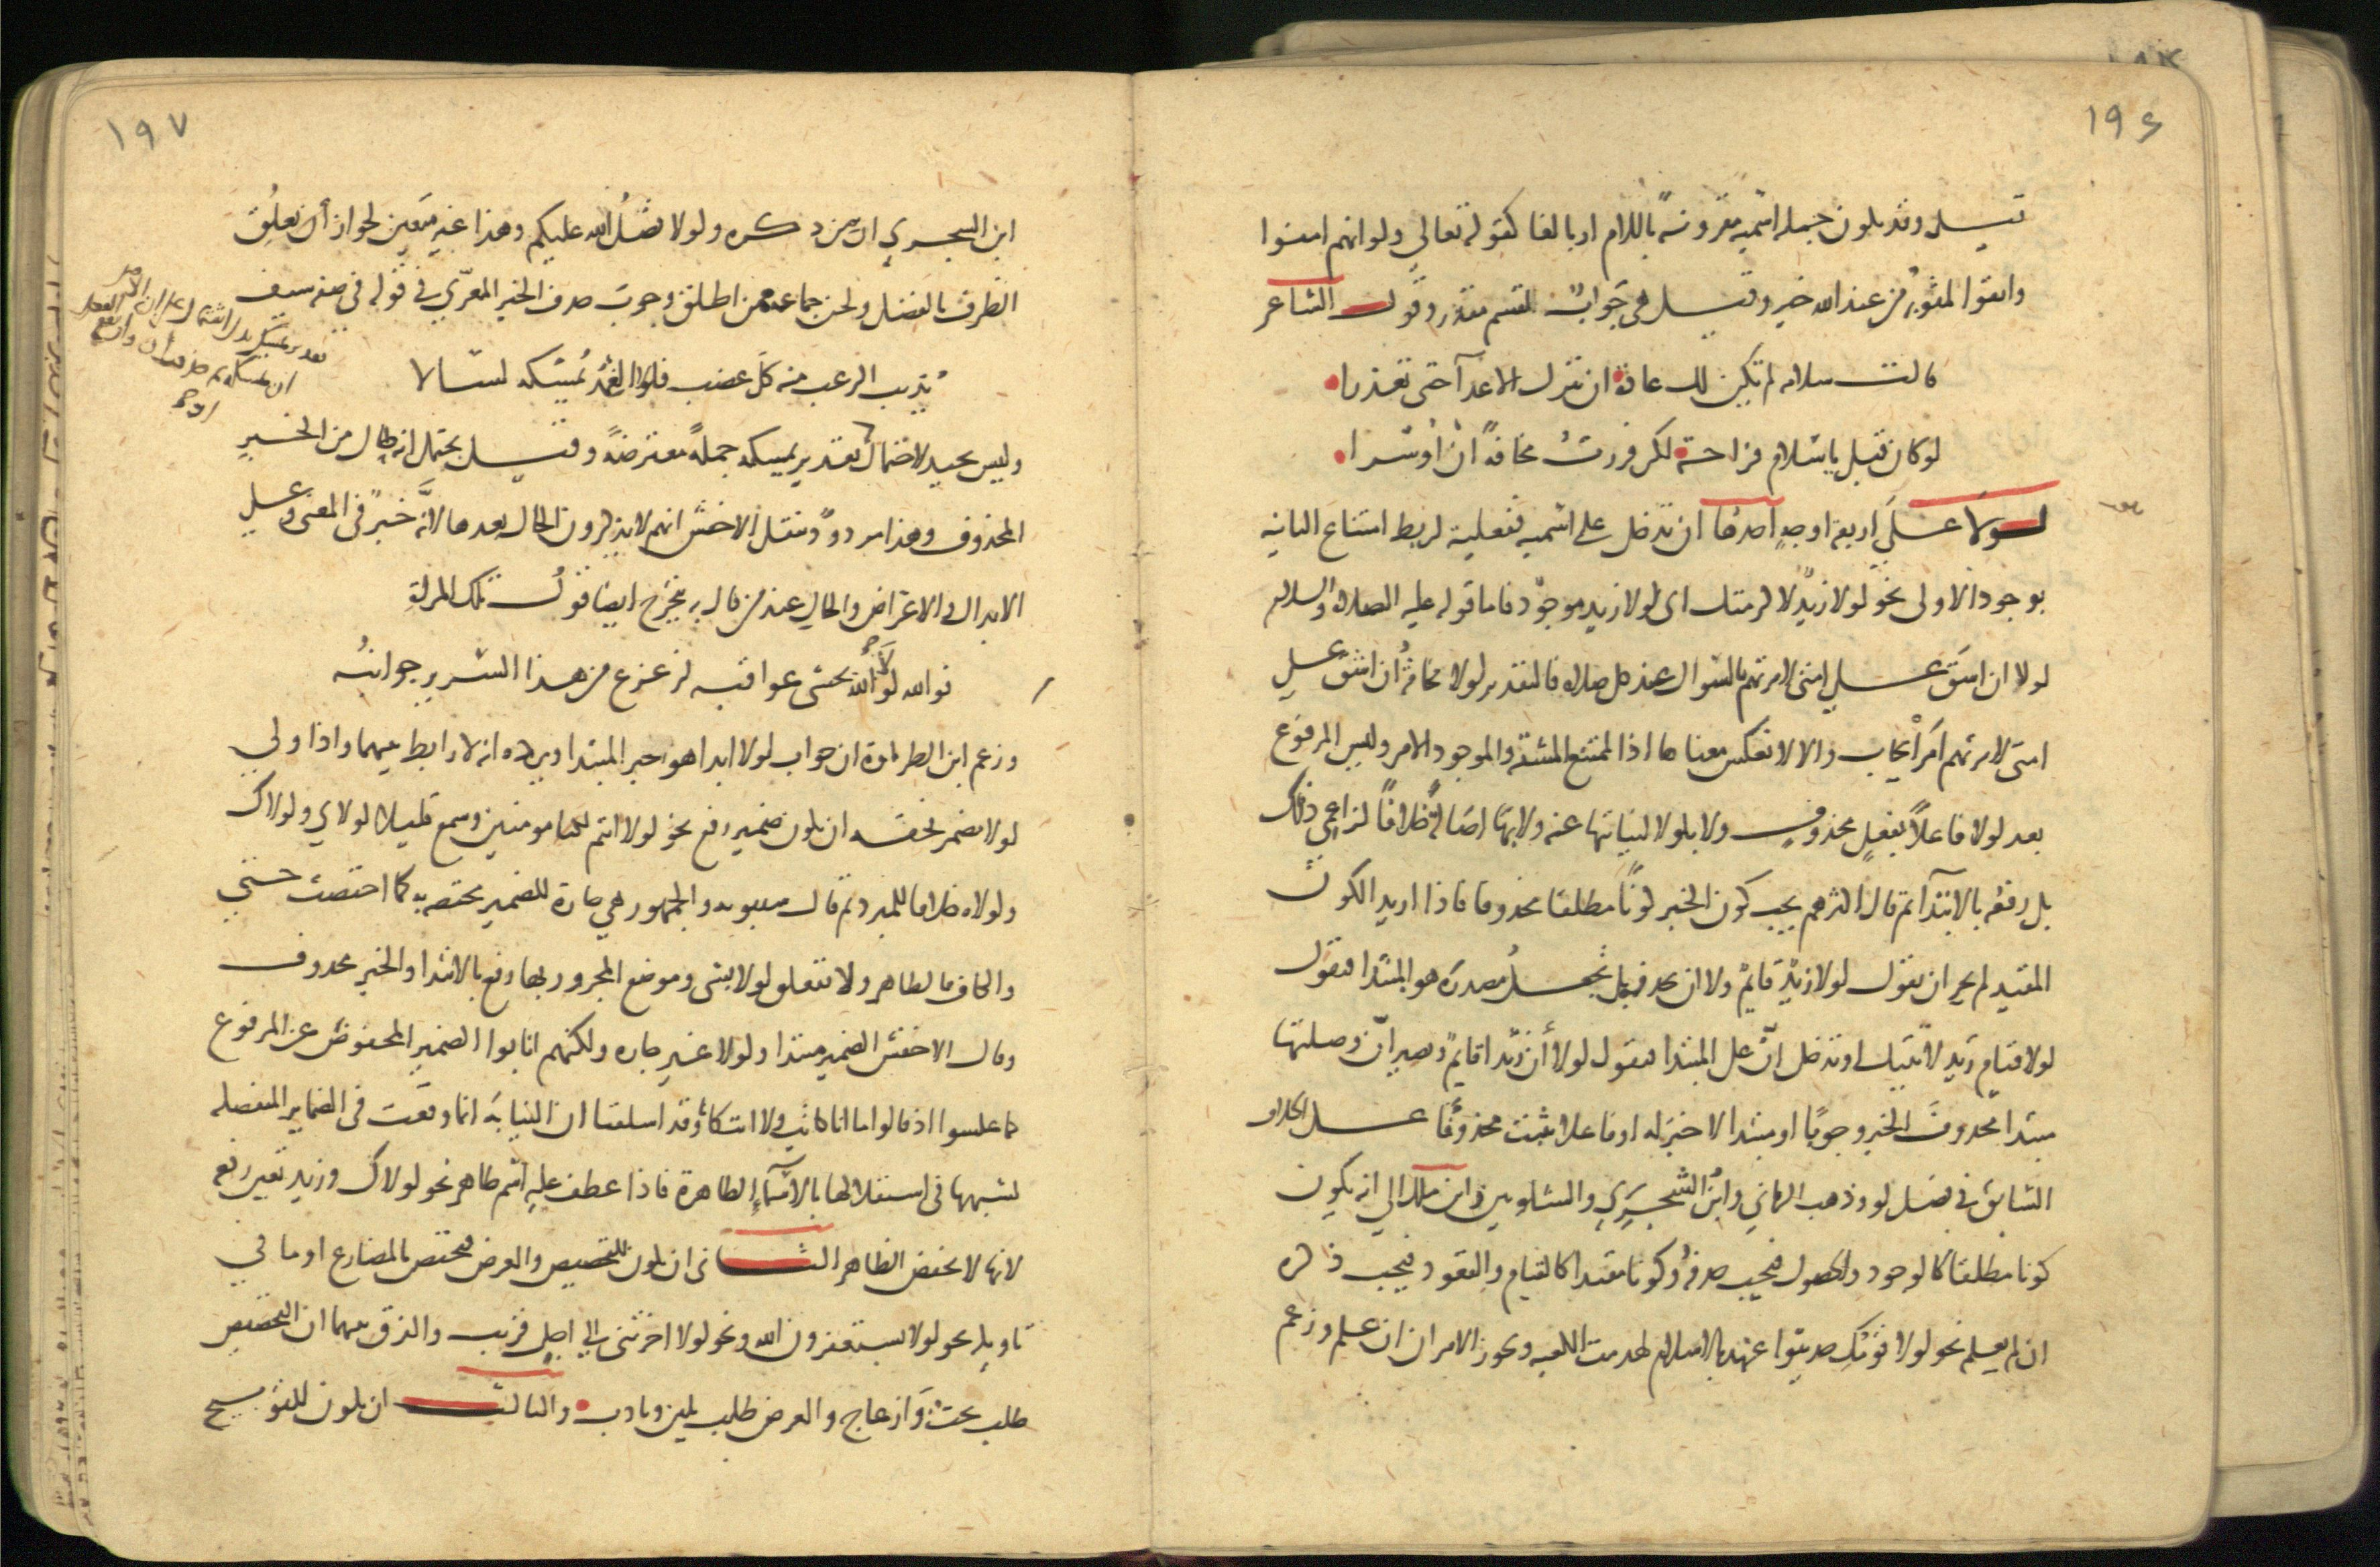 ١٩٦
قيل وقد يكون جملة اسمية مقرونة باللام او بالفا كقوله تعالى ولو انهم امنوا
واتقوا لمثوبة من عند الله خير وقيل هى جواب لقسم مقدر وقول الشاعر
قالت سلامه لم تكن لك عادة ان تترك الاعدآ حتى تعذرا
لو كان قتل يا سلام فراحة لكن فررت مخافة ان اوسرا
لولا على اربعة اوجه احدها ان تدخل على اسمية ففعلية لربط امتناع الثانيه
بوجود الاولى نحو لولا زيد لاكرمتك اى لولا زيد موجود فاما قوله عليه الصلاة والسلام
لولا ان اشق على امتى لامرتهم بالسواك عند كل صلاة فالتقدير لولا مخافة ان اشق على
امتى لامرتهم امر ايجاب والا لانعكس معناها اذ الممتنع المشقة والموجود الامر وليس المرفوع
بعد لولا فاعلا بفعل محذوف ولا بلولا لنيابتها عنه ولا بها اصالة خلافا لزاعمى ذلك
بل رفعه بالابتدآ ثم قال اكثرهم يجب كون الخبر كونا مطلقا محذوفا فاذا اريد الكون
المقيد لم يجز ان تقول لولا زيد قايم ولا ان تحذفه بل تجعل مصدره هو المبتدا فتقول
لولا قيام زيد لاتيتك او تدخل ان على المبتدا فتقول لولا أن زيدا قايم وتصير ان وصلتها
مبتدا محذوف الخبر وجوبا او مبتدا لا خبر له او فاعلا بثبت محذوفا على الخلاف
السابق فى فصل لو وذهب الرمانى وابن الشجرى والشلوبين وابن ملك الى انه يكون
كونا مطلقا كالوجود والحصول فيجب حذفه وكونا مقيدا كالقيام والقعود فيجب ذكره
ان لم يعلم نحو لولا قومك حديثوا عهد بالاسلام لهدمت الكعبه ويجوز الامران ان علم وزعم
١٩٧
ابن الشجرى ان من ذكره ولولا فضل الله عليكم وهذا غير متعين لجواز أن تعلق
الظرف بالفضل ولحن جماعة ممن اطلق وجوب حذف الخبر المعرّى فى قوله فى صفه سيف
يذيب الرعب منه كل عضب فلولا الغمد يمسكه لسالا
وليس بجيد لاحتمال تقدير يمسكه جملة معترضة وقيل يحتمل انه حال من الخبر
المحذوف وهذا مردود بنقل الاخفش انهم لا يذكرون الحال بعدها لانه خبر فى المعنى وعلى
الابدال والاعتراض والحال عند من قال به يتخرج ايضا قول تلك المراة
فوالله لولا الله تخشى عواقبه لزعزع من هذا السرير جوانبه
وزعم ابن الطراوة ان جواب لولا ابدا هو خبر المبتدا ويرده انه لا رابط بينهما واذا ولى
لولا مضمر فحقه ان يكون ضمير رفع نحو لولا انتم لكنا مومنين وسمع قليلا لولاى ولولاك
ولولاه خلافا للمبرد ثم قال سيبويه والجمهور هى جارة للضمير مختصة به كما اختصت حتى
والكاف بالظاهر ولا تتعلق لولا بشى وموضع المجرور بها رفع بالابتدا والخبر محذوف
وقال الاخفش الضمير مبتدا ولولا غير جاره ولكنهم انابوا الضمير المخفوض عن المرفوع
كما عكسوا اذ قالوا ما انا كانت ولا انت كانا وقد اسلفنا ان النيابة انما وقعت فى الضماير المنفصله
لشبهها فى استقلالها بالاسمآء الظاهرة فاذا عطف عليه اسم ظاهر نحو لولاك وزيد تعين رفعه
لانها لا تخفض الظاهر الثانى ان يكون للتحضيض والعرض فتختص بالمضارع او ما فى
تاويله نحو لولا تستغفرون الله ونحو لولا اخرتنى الى اجل قريب والفرق بينهما ان التحضيض
طلب بحث وازعاج والعرض طلب بلين وتادب والثالث ان يكون للتوبيخ